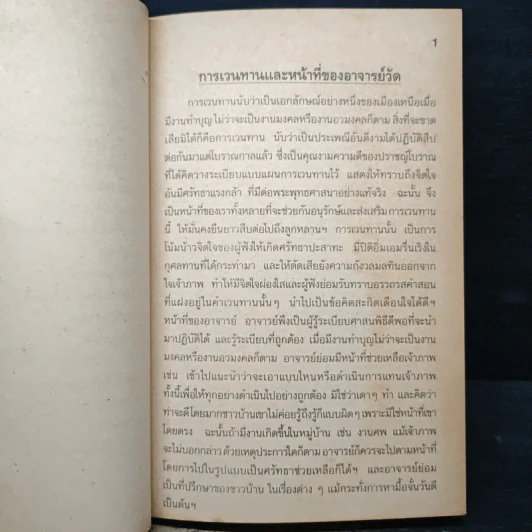 1
การเวนทานและหน้าที่ของอาจารย์วัด
การเวนทานนับว่าเป็นเอกลักษณ์อย่างหนึ่งของเมืองเหนือเมื่อ
มีงานทำบุญ ไม่ว่าจะเป็นงานมงคลหรืองานอวมงคลก็ตาม สิ่งที่จะขาด
เสียมิได้ก็คือการเวนทาน นับว่าเป็นประเพณีอันดีงามได้ปฏิบัติสืบ
ต่อกันมาแต่โบราณกาลแล้ว ซึ่งเป็นคุณงามความดีของปราชญ์โบราณ
ที่ได้คิดวางระเบียบแบบแผนการเวนทานไว้ แสดงให้ทราบถึงจิตใจ
อันมีศรัทธาแรงกล้า ที่มีต่อพระพุทธศาสนาอย่างแท้จริง ฉะนั้น จึง
เป็นหน้าที่ของเราทั้งหลายที่จะช่วยกันอนุรักษ์และส่งเสริมการเวนทาน
นี้ ให้มั่นคงยืนยาวสืบต่อไปถึงลูกหลานฯ การเวนทานนั้น เป็นการ
โน้มน้าวจิตใจของผู้ฟังให้เกิดศรัทธาปะสาทะ มีปิติอิ่มเอมรื่นเริงใน
กุศลทานที่ได้กระทำมา และให้ตัดเสียยังความกังวลมลทินออกจาก
ใจเจ้าภาพ ทำให้มีจิตใจผ่องใสและผู้ฟังย่อมรับทราบอรรถรสคำสอน
ที่แฝงอยู่ในคำเวนทานนั้นๆ นำไปเป็นข้อคิดสะกิดเตือนใจได้ดีฯ
หน้าที่ของอาจารย์ อาจารย์พึงเป็นผู้รู้ระเบียบศาสนพิธีดีพอที่จะนำ
มาปฏิบัติได้ และรู้ระเบียบที่ถูกต้อง เมื่อมีงานทำบุญไม่ว่าจะเป็นงาน
มงคลหรืองานอวมงคลก็ตาม อาจารย์ย่อมมีหน้าที่ช่วยเหลือเจ้าภาพ
เช่น เข้าไปแนะนำว่าจะเอาแบบไหนหรือดำเนินการแทนเจ้าภาพ
ทั้งนี้เพื่อให้ทุกอย่างดำเนินไปอย่างถูกต้อง มิใช่ว่าเดาๆ ทำ และคิดว่า
ทำจะดีโดยมากชาวบ้านเขาไม่ค่อยรู้ถึงรู้ก็แบบผิดๆเพราะมิใช่หน้าที่เขา
โดยตรง ฉะนั้นถ้ามีงานเกิดขึ้นในหมู่บ้าน เช่น งานศพ แม้เจ้าภาพ
จะไม่บอกกล่าว ด้วยเหตุประการใดก็ตาม อาจารย์ก็ควรจะไปตามหน้าที่
โดยการไปในรูปแบบเป็นศรัทธาช่วยเหลือก็ได้ฯ และอาจารย์ย่อม
เป็นที่ปรึกษาของชาวบ้าน ในเรื่องต่าง ๆ แม้กระทั่งการหามื้อจั๋นวันดี
เป็นต้นฯ